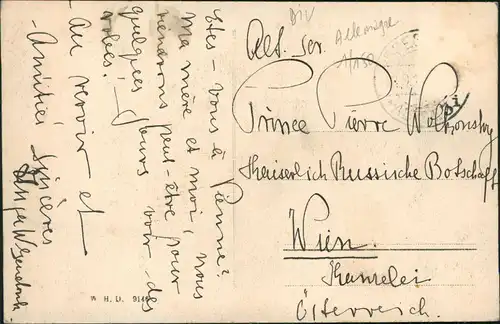 Êtes-vous à Vienne?
Ma mère et moi, nous
viendrons peut-être pour
quelques jours voir des
Au revoir et
Amitiés sincères
W. H. D. 914
DIV
Allemagne
1/150
Prince Pierre Wolkonsky
Kaiserlich Russische Botschaft
Wien.
Kanzlei
Österreich.